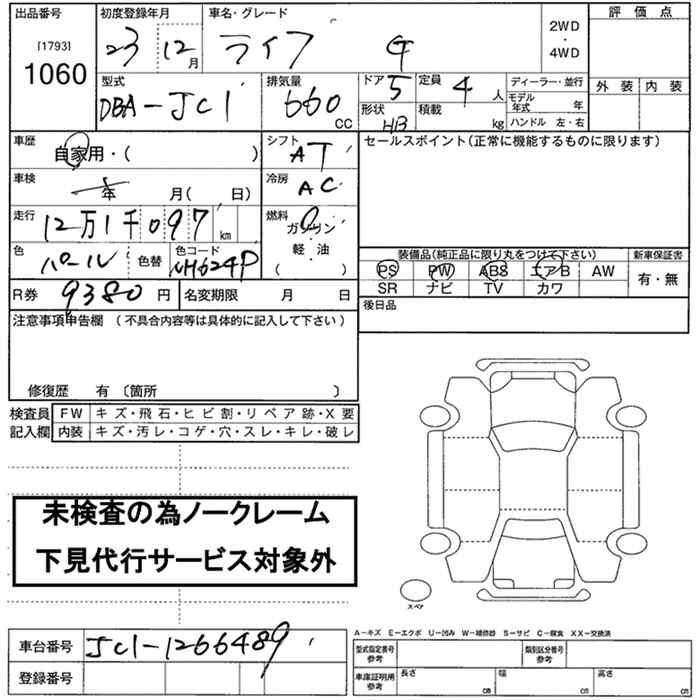 出品番号 初度登録年月 車名・グレード 2WD・4WD 評価点
[1793] 1060 23 12月 ライフ G
外装 内装
型式 DBA-JC1 排気量 660 CC ドア 5 定員 4 人 ディーラー・並行
形状 HB 積載 kg モデル年式 年
ハンドル 左・右
車歴 自家用・( ) シフト AT セールスポイント(正常に機能するものに限ります)
車検 年 月( 日) 冷房 AC
走行 12万1千097 km 燃料 ガソリン
色 パール 色替 色コード NH624P 軽・油 ( )
装備品(純正品に限り丸をつけて下さい) 新車保証書
PS PW ABS エアB AW 有・無
SR ナビ TV カワ
R券 9380 円 名変期限 月 日
後日品
注意事項申告欄 (不具合内容等は具体的に記入して下さい)
修復歴 有 〔箇所 〕
検査員 FW キズ・飛石・ヒビ割・リペア跡・X要
記入欄 内装 キズ・汚レ・コゲ・穴・スレ・キレ・破レ
未検査の為ノークレーム
下見代行サービス対象外
スペア
A-キズ E-エクボ U-凹み W-補修跡 S-サビ C-腐食 XX-交換済
車台番号 JC1-1266489
型式指定番号 参考 類別区分番号 参考
登録番号
車庫証明用 参考 長さ cm 幅 cm 高さ cm